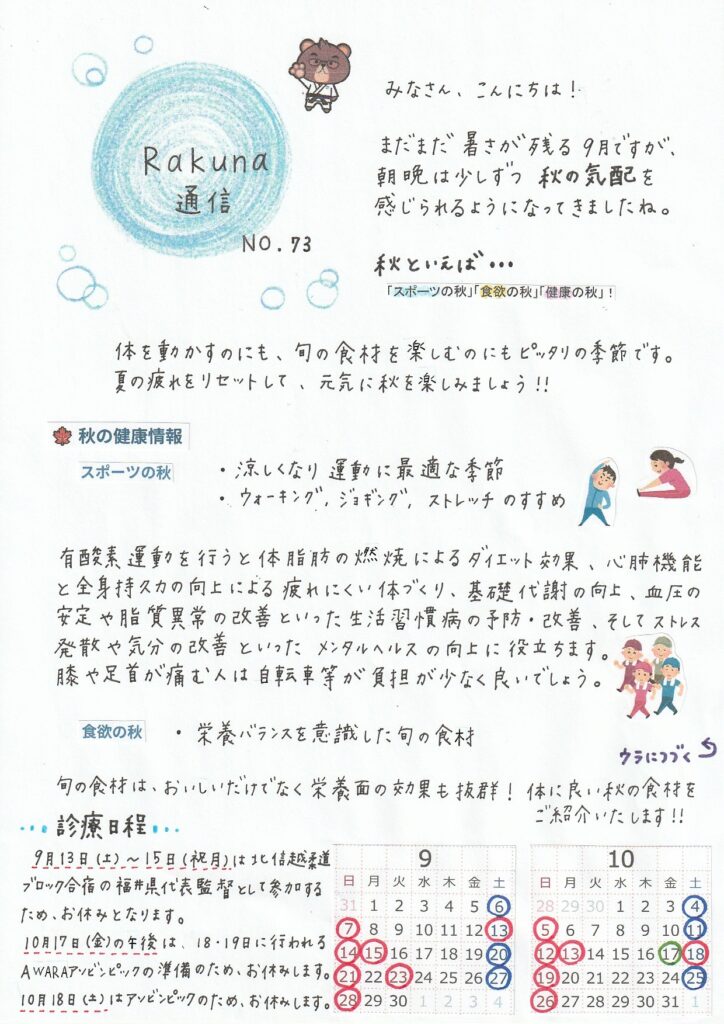 Rakuna
通信
NO.73
みなさん、こんにちは！
まだまだ暑さが残る9月ですが、
朝晩は少しずつ 秋の気配を
感じられるようになってきましたね。
秋といえば・・・
「スポーツの秋」「食欲の秋」「健康の秋」！
体を動かすのにも、旬の食材を楽しむのにもピッタリの季節です。
夏の疲れをリセットして、元気に秋を楽しみましょう!!
秋の健康情報
スポーツの秋
・涼しくなり運動に最適な季節
・ウォーキング，ジョギング，ストレッチのすすめ
有酸素運動を行うと体脂肪の燃焼によるダイエット効果、心肺機能
と全身持久力の向上による疲れにくい体づくり、基礎代謝の向上、血圧の
安定や脂質異常の改善といった生活習慣病の予防・改善、そしてストレス
発散や気分の改善といったメンタルヘルスの向上に役立ちます。
膝や足首が痛む人は自転車等が負担が少なく良いでしょう。
食欲の秋
・栄養バランスを意識した旬の食材
ウラにつづく
旬の食材は、おいしいだけでなく栄養面の効果も抜群！体に良い秋の食材を
ご紹介いたします!!
・・・診療日程・・・
9月13日(土)～15日(祝月)は北信越柔道
ブロック合宿の福井県代表監督として参加する
ため、お休みとなります。
10月17日(金)の午後は、18・19日に行われる
AWARAアソビンピックの準備のため、お休みします。
10月18日(土)はアソビンピックのため、お休みします。
9
日 月 火 水 木 金 土
31 1 2 3 4 5 6
7 8 9 10 11 12 13
14 15 16 17 18 19 20
21 22 23 24 25 26 27
28 29 30 1 2 3 4
10
日 月 火 水 木 金 土
28 29 30 1 2 3 4
5 6 7 8 9 10 11
12 13 14 15 16 17 18
19 20 21 22 23 24 25
26 27 28 29 30 31 1